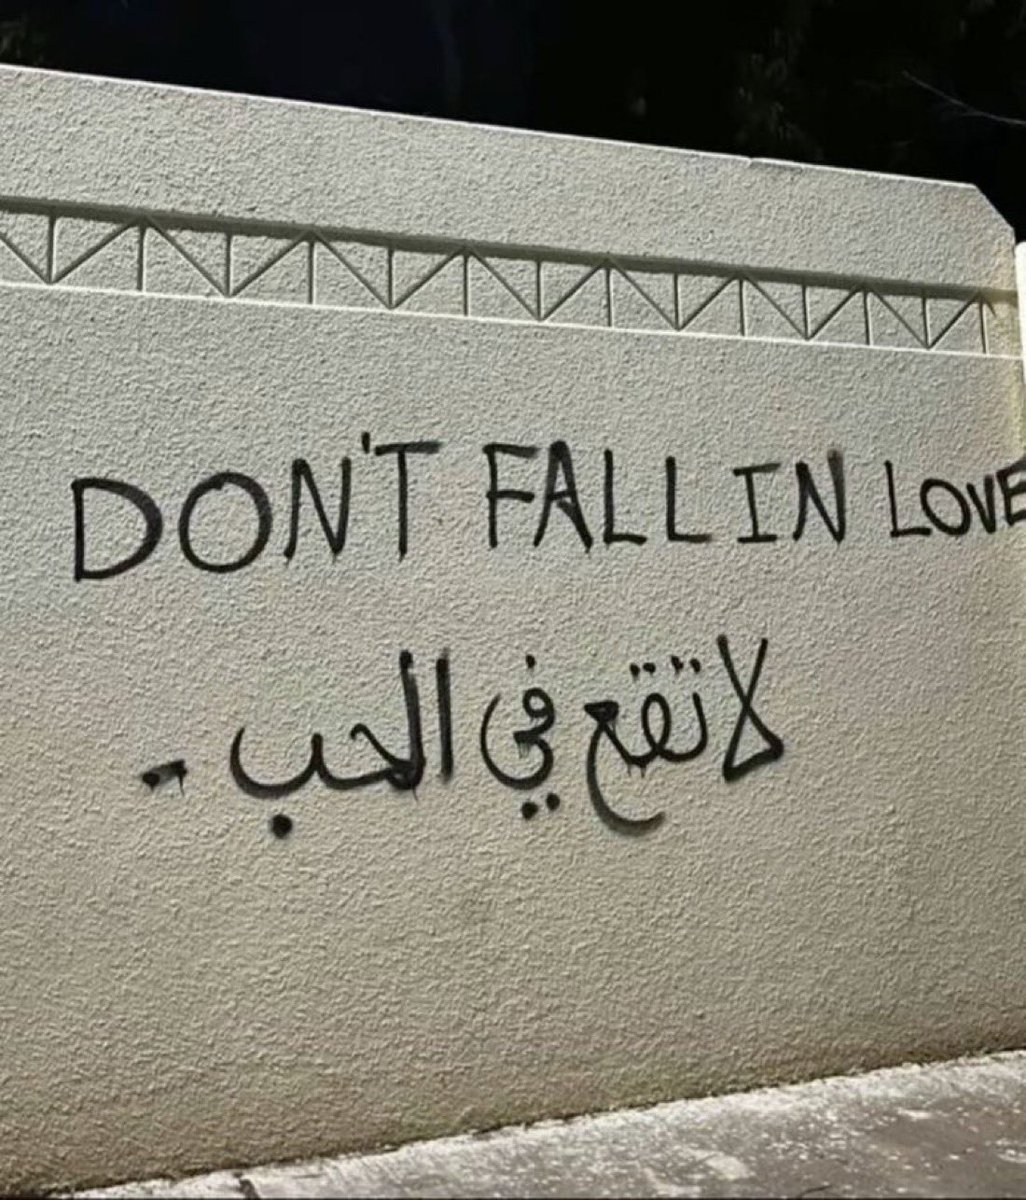 DON'T FALL IN LOVE
لا تقع في الحب -